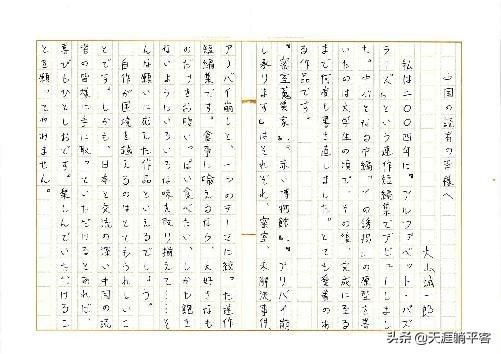 中国の読者の皆様へ
大山誠一郎
私は二〇〇四年に『アルファベット・パズ
ラーズ』という連作短編集でデビューしまし
た。中心となる中編「Yの誘拐」の原型を書
いたのは大学生の頃で、その後、完成に至る
まで何度も書き直しました。とても愛着のあ
る作品です。
『密室蒐集家』、『赤い博物館』、『アリバイ崩
し承ります』はそれぞれ、密室、未解決事件、
アリバイ崩しと、一つのテーマに絞った連作
短編集です。食事に喩えるなら、大好きなも
のだけをお腹いっぱい食べたい、しかし飽き
ないようにいろいろな味を取り揃えて……そ
んな願いに応えた作品といえるでしょう。
自作が国境を越えるのはとてもうれしいこ
とです。しかも、日本と交流の深い中国の読
者の皆様に手に取っていただけるとあれば、
喜びもひとしおです。楽しんでいただけるこ
とを願ってやみません。
头条 @天涯躺平客